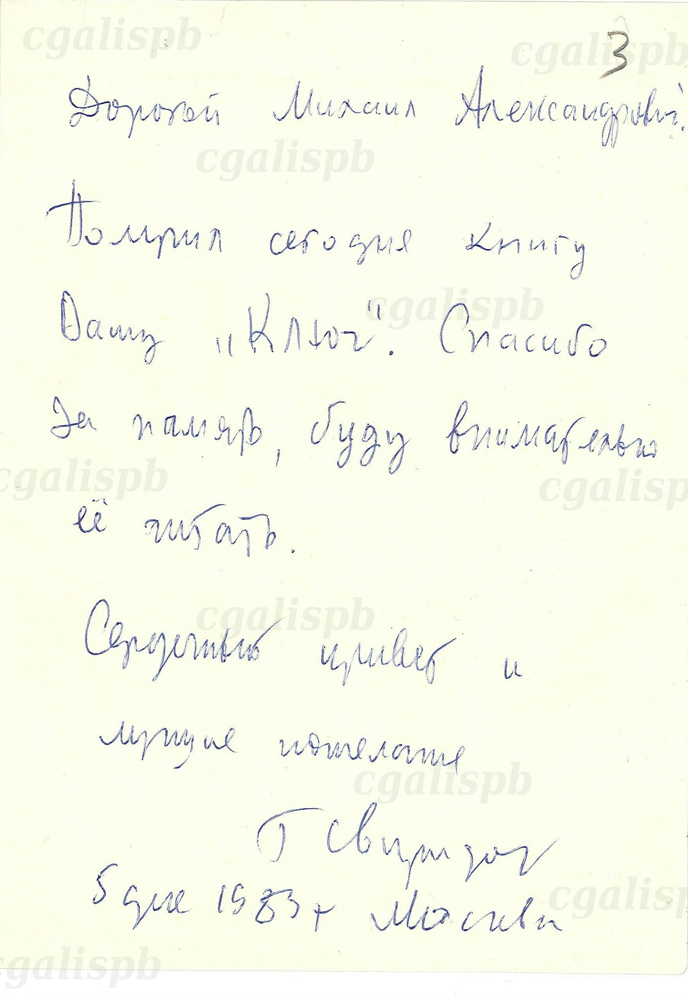 3
Дорогой Михаил Александрович!
Получил сегодня книгу
Вашу „Ключ". Спасибо
за память, буду внимательно
её читать.
Сердечный привет и
лучшие пожелания
Г Свиридов
5 дек 1983 г Москва
cgalispb
cgalispb
cgalispb
cgalispb
cgalispb
cgalispb
cgalispb
cgalispb
cgalispb
cgalispb